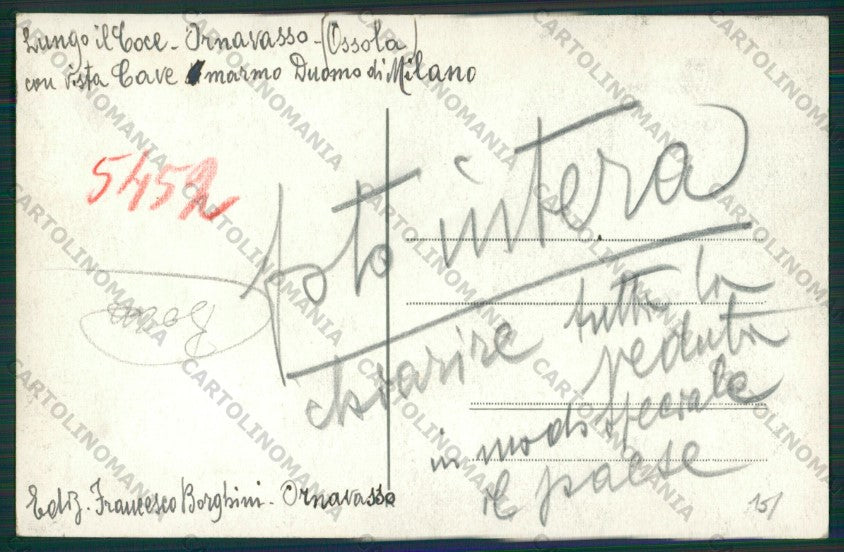 Lungo il Toce - Ornavasso - (Ossola)
con vista Cave marmo Duomo di Milano
5452
foto intera
chiarire tutta la
veduta
in modo speciale
il paese
Ediz. Francesco Borghini - Ornavasso
15/
CARTOLINOMANIA